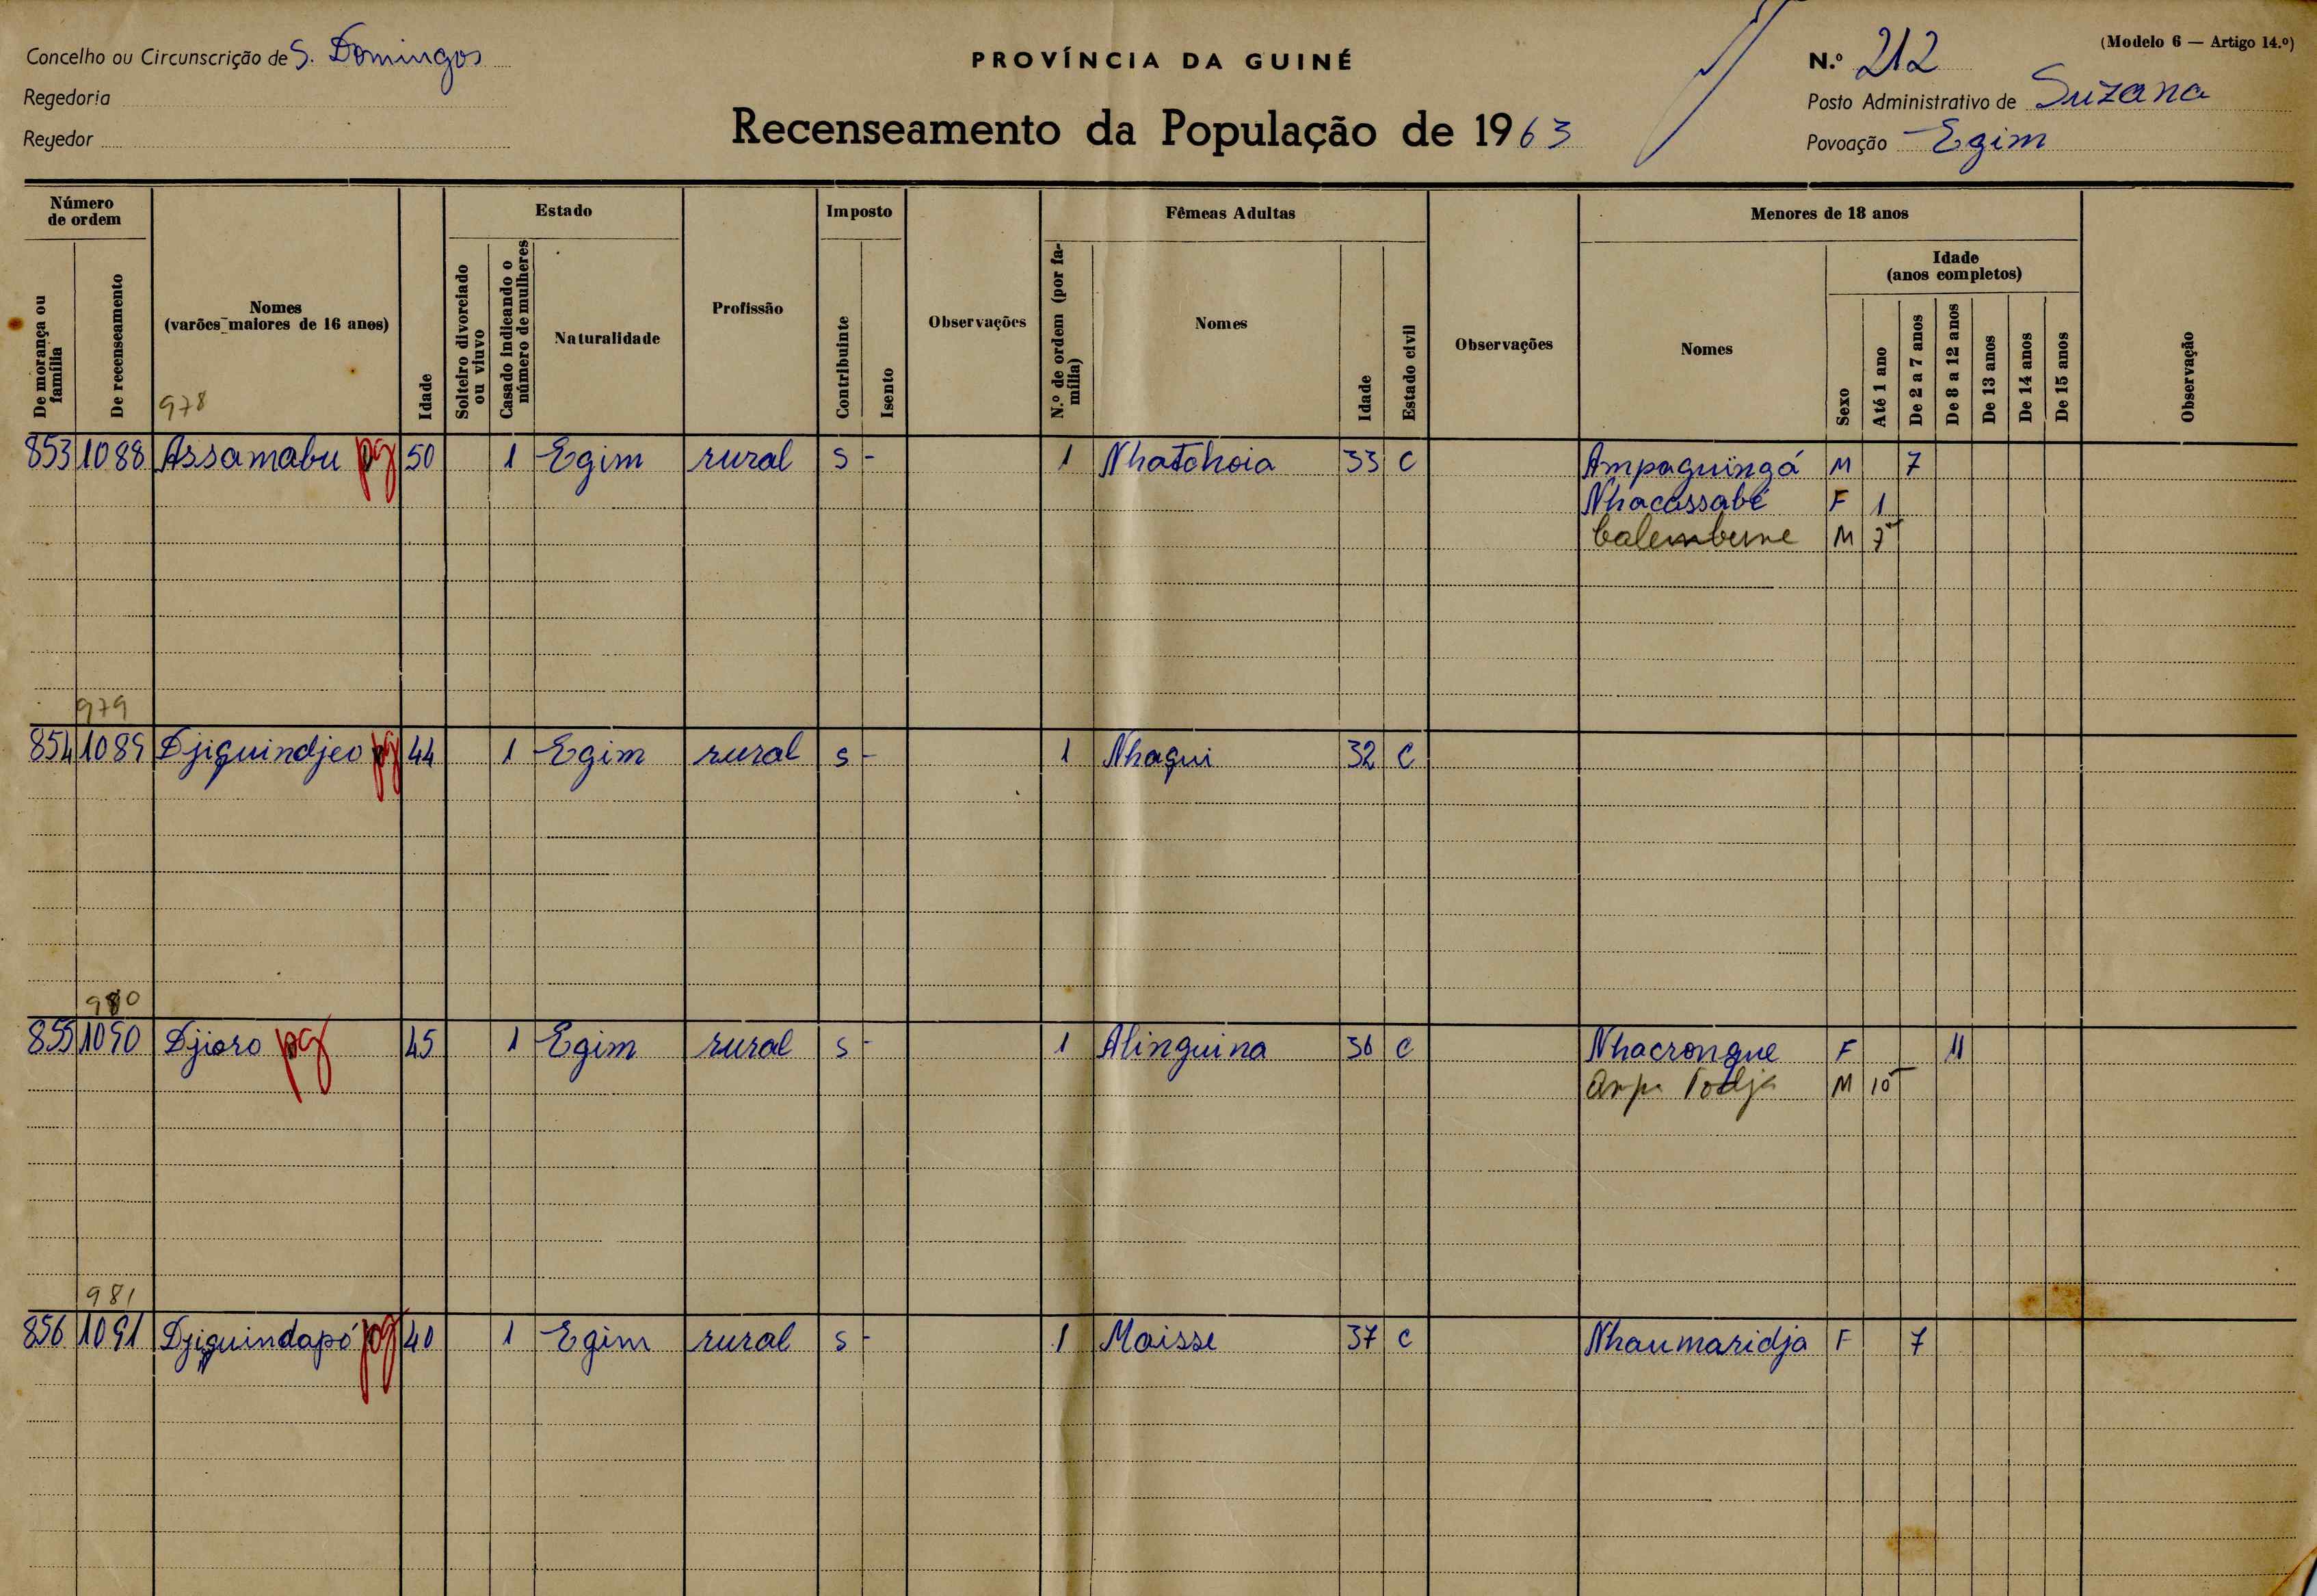 Concelho ou Circunscrição de S. Domingos
Regedoria
Regedor
PROVÍNCIA DA GUINÉ
Recenseamento da População de 1963
(Modelo 6 — Artigo 14.º)
N.º 212
Posto Administrativo de Suzana
Povoação Egim
Número de ordem
De morança ou família
De recenseamento
Nomes (varões maiores de 16 anos)
Idade
Estado
Solteiro divorciado ou viuvo
Casado indicando o número de mulheres
Naturalidade
Profissão
Imposto
Contribuinte
Isento
Observações
Fêmeas Adultas
N.º de ordem (por família)
Nomes
Idade
Estado civil
Observações
Menores de 18 anos
Nomes
Sexo
Idade (anos completos)
Até 1 ano
De 2 a 7 anos
De 8 a 12 anos
De 13 anos
De 14 anos
De 15 anos
Observação
978
853 1088 Assamabu pg 50 1 Egim rural s - 1 Nhatchoia 33 C Ampaguingá M 7
Nhacassabé F 1
M 7
979
854 1089 Djiguindjeo pg 44 1 Egim rural s - 1 Nhagui 32 C
980
855 1090 Djioro pg 45 1 Egim rural s - 1 Alinguina 36 C Nhacrongue F 11
M 10
981
856 1091 Djiguindapó pg 40 1 Egim rural s - 1 Maisse 37 C Nhaumaridja F 7